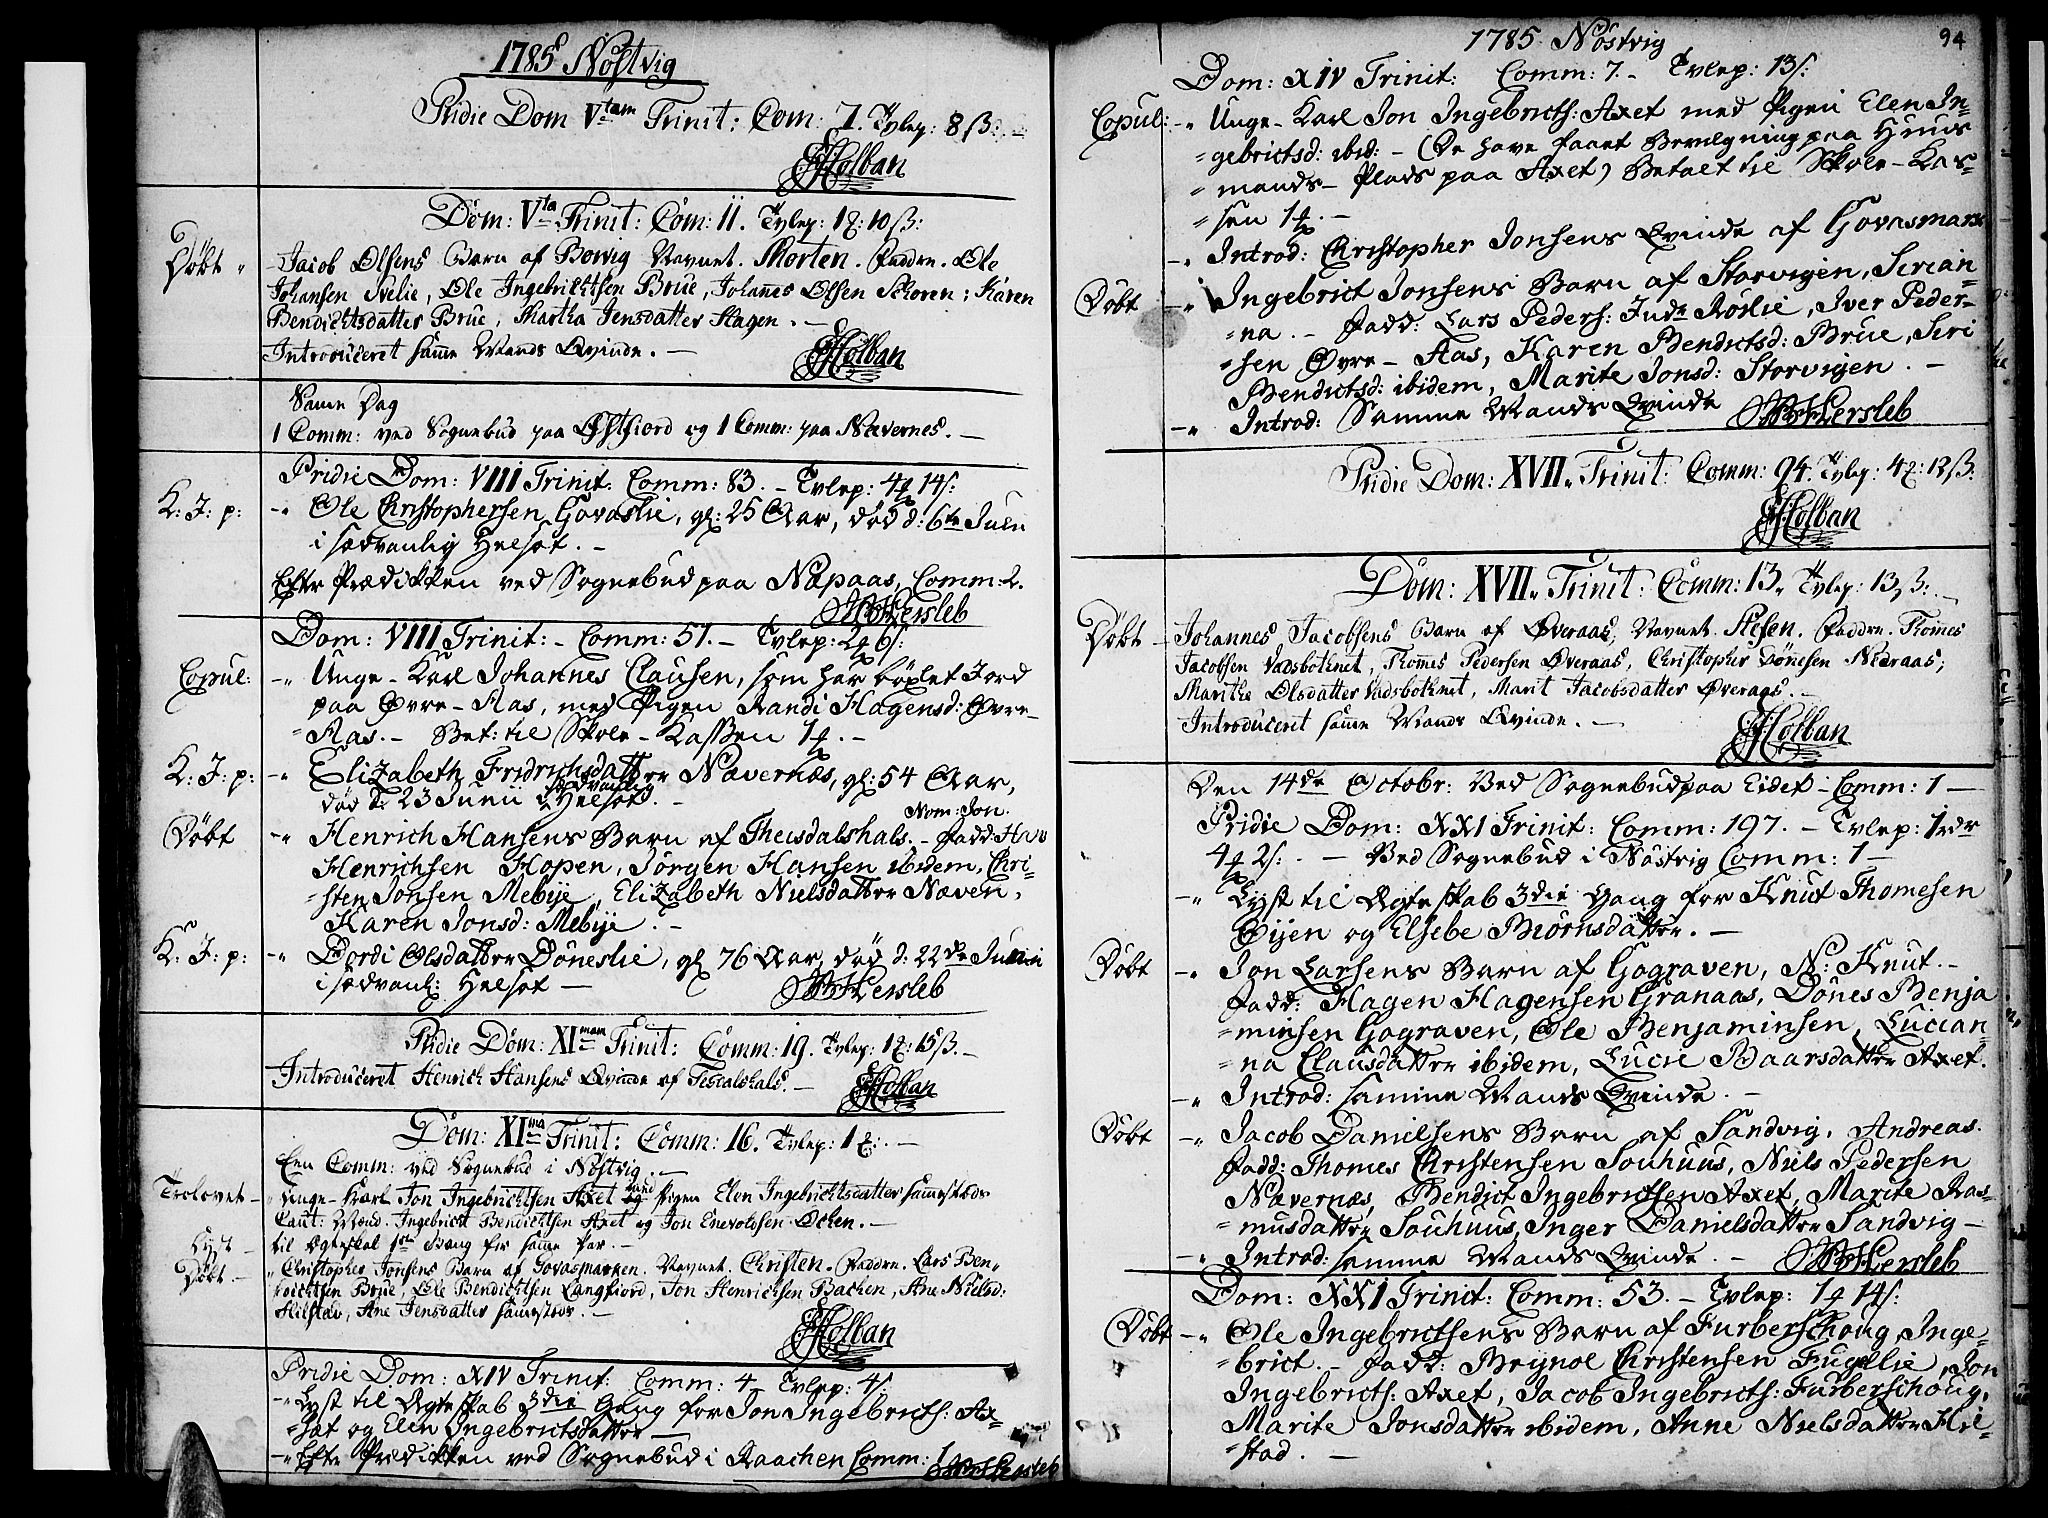 1785 Nöstvig
Pridie Dom Vtam Trinit: Com: 7. Tvlep: 8 ß:
Holban
Dom: Vta Trinit: Com: 11. Tvlep: 1 10 ß:
Döbt " Jacob Olsens Barn af Bovig Navnet. Morten. Faddre. Ole
Johansen Nelie, Ole Ingebrichtsen Brue, Johannes Olsen Schoren; Karen
Bendichtsdatter Brue, Martha Jensdatter Hagen. -
Introduceret samme Mands Qvinde. -
Holban
Samme Dag
1 Comm: ved Sognebud paa Østfiord og 1 Comm: paa Nævernes. -
Pridie Dom: VIII Trinit: Comm: 83. - Tvlep: 4 14 s:
K: J: p: -" Ole Christophersen Govaslie, gl: 25 Aar, död d: 6te Julii
i sædvanlig Helsot. -
Efter Prædikken ved Sognebud paa Næpaas, Comm: 2.
Hersleb
Dom: VIII Trinit: - Comm: 51. - Tvlep: 2 6 s:
Copul: -" Unge-Karl Johannes Clausen, som har böxlet Jord
paa Øvre-Aas, med Pigen Randi Hagensd: Øvre-
=Aas. - Bet: til Skole-Kassen 1 . -
K: J: p: -" Elizabeth Fridrichsdatter Nævernæs, gl: 54 Aar,
död d: 23 Junii i sædvanlig Helsot. -
Nom: Jon.
Döbt -" Henrich Hansens Barn af Theisdalshals. - Fadd: Hans
Henrichsen Hopen, Jörgen Hansen ibidem, Chri-
=sten Jonsen Mebÿe, Elizabeth Nielsdatter Næven,
Karen Jonsd: Mebÿe. -
K: J: p: -" Dordi Olsdatter Döneslie, gl 76 Aar, död d: 22de Junii
i sædvanl: Helsot -
Hersleb
Pridie Dom: XImam Trinit: Comm: 19. Tvlep: 1 15 ß. -
Introduceret Henrich Hansens Qvinde af Tesdalshals. -
Holban
Dom: XIma Trinit: Comm: 16. Tvlep: 1 . -
Een Comm: ved Sognebud i Nöstvig. -
Trolovet - " Unge-Karl Jon Ingebrichtsen Axet med Pigen Elen Ingebrichtsdatter sammestæds
Caut: Mænd. Ingebricht Bendichtsen Axet og Jon Enevoldsen Ochen. -
Lyst - til Ægteskab 1ste Gang for samme Par. -
Döbt - " Christopher Jonsens Barn af Govasmarken. Navnet. Christen. Faddre. Lars Ben-
dichtsen Brue, Ole Bendichtsen Langfiord, Jon Henrichsen Bachen, Ane Nielsd:
Hilstad, Ane Jensdatter sammestæds. -
Holban
Pridie Dom: XIV Trinit: Comm: 4 Tvlep: 4 s:
-" Lyst til Ægteskab 3die Gang for Jon Ingebricths: Ax-
=sæt og Elen Ingebrictsdatter -
-" Efter Prædikken ved Sognebud i Raachen Comm: 1
Hersleb
1785. Nöstvig 94
Dom: XIV Trinit: Comm: 7. - Tvlep: 13 s:
Copul: -" Unge-Karl Jon Ingebricths: Axet med Pigen Elen In-
=gebrictsd: ibid: - (De have faaet Bevilgning paa Huus-
=mands-Plads paa Axet) Betalt til Skole-Kas-
=sen 1 . -
-" Introd: Christopher Jonsens Qvinde af Govasmark
Döbt -" Ingebrict Jonsens Barn af Storvigen, Sirian-
=na. - Fadd: Lars Peders: Indr Röslie, Iver Peder-
=sen Øvre-Aas, Karen Bendictsd: Brue, Siri
Bendictsd: ibidem, Marite Jonsd: Storvigen. -
-" Introd: Samme Mands Qvinde
Hersleb
Pridie Dom: XVII. Trinit: Comm: 94. Tvlep: 4 12 ß:
Holban
Dom: XVII. Trinit: Comm: 13. Tvlep: 13 ß: -
Döbt - Johannes Jacobsens Barn af Øveraas, Navnet. Stesen. Faddre. Thomes
Jacobsen Vadsbothnet, Thomes Pedersen Øveraas, Christopher Dönesen Nedraas,
Marithe Olsdatter Vadsbothnet, Marit Jacobsdatter Øveraas. -
Introduceret samme Mands Qvinde. -
Holban
Den 14de Octobr: Ved Sognebud paa Eidet - Comm: 1 -
Pridie Dom: XXI Trinit: Comm: 197. - Tvlep: 1 rdr
4 2 s: . - Ved Sognebud i Nöstvig Comm: 1 -
-" Lyst til Ægteskab 3die Gang for Knut Thomesen
Eijen og Elsebe Biörnsdatter. -
Döbt -" Jon Larsens Barn af Gograven, N: Knut. -
Fadd: Hagen Hagensen Granaas, Dönes Benja
=minsen Gograven, Ole Benjaminsen, Lucian
=na Clausdatter ibidem, Lucie Baarsdatter Axet.
-" Introd: samme Mands Qvinde. -
Döbt -" Jacob Danielsens Barn af Sandvig, Andreas.
Fadd: Thomes Christensen Souhuus, Niels Pedersen
Nævernæs, Bendict Ingebrictsen Axet, Marite Ras-
=musdatter Souhuus, Inger Danielsdatter Sandvig -
-" Introd: samme Mands Qvinde. -
Hersleb
Dom: XXI Trinit: Comm: 53. - Tvlep: 1 14 s:
Döbt -" Ole Ingebrictsens Barn af Furberschoug, Inge-
=brict. - Fadd: Brynol Christensen Fuglelie, Jon
Ingebricts: Axet, Jacob Ingebricts: Furberschoug,
Marite Jonsdatter ibidem, Anne Nielsdatter Hil-
=stad. -